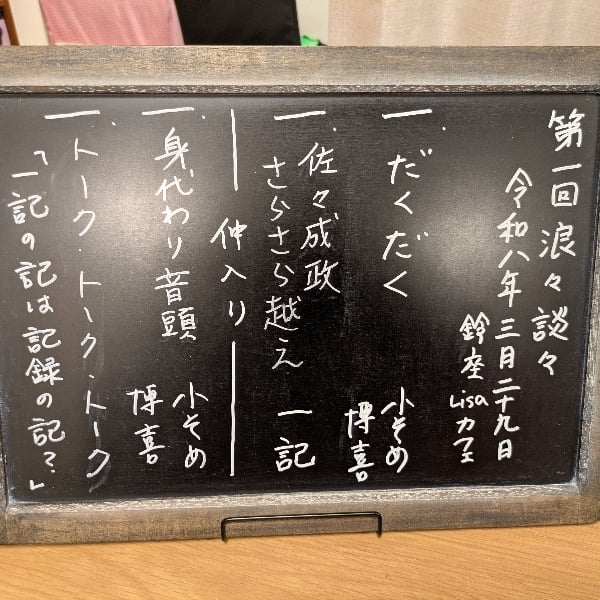 第一回 浪々談々
令和八年 三月二十九日
鈴座 Lisa カフェ
一. だくだく 小そめ
博喜
一. 佐々成政
さらさら越え 一記
仲入り
一. 身代わり音頭 小そめ
博喜
一. トーク・トーク・トーク
「一記の記は記録の記？」